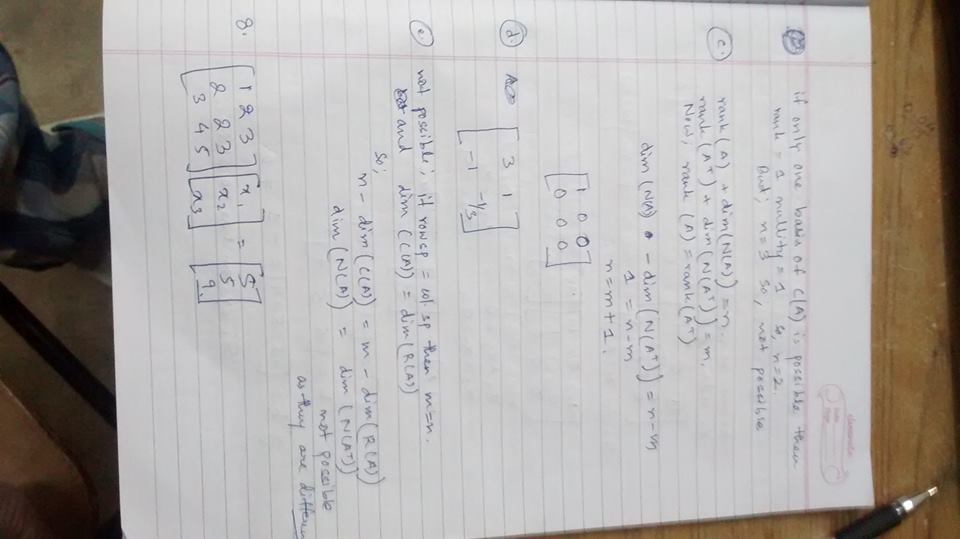 if only one basis of C(A) is possible then
rank = 1 nullity = 1 so, n = 2.
But, n = 3 so, not possible
c. rank(A) + dim(N(A)) = n.
rank(Aᵀ) + dim(N(Aᵀ)) = m.
Now, rank(A) = rank(Aᵀ)
dim(N(A)) - dim(N(Aᵀ)) = n - m
1 = n - m
n = m + 1.
[1 0 0
0 0 0]
d. [3 1
-1 -1/3]
e. not possible; if row sp = col. sp then m = n.
and dim(C(A)) = dim(R(A))
so;
n - dim(C(A)) = m - dim(R(A))
dim(N(A)) = dim(N(Aᵀ))
not possible
as they are differen
8. [1 2 3] [x₁] = [5]
[2 2 3] [x₂] [5]
[3 4 5] [x₃] [9.]